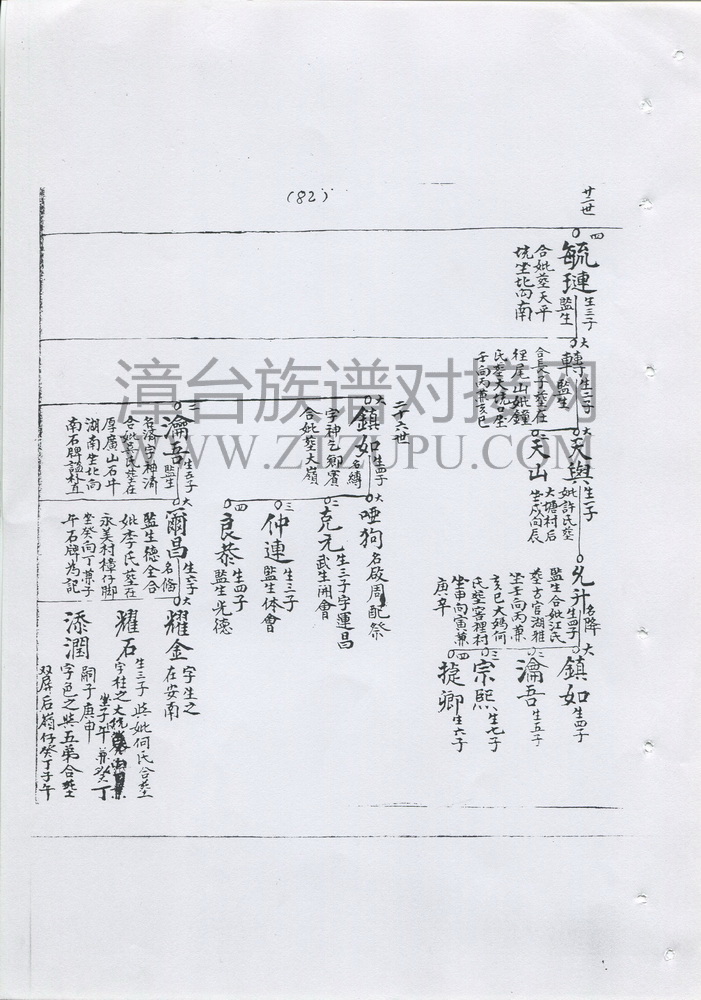 (82)
廿二世
四
毓璉
生三子
監生
合妣塟天平
坑坐北向南
大
轉
生二子
監生
合長子塟在
徑尾山妣鐘
氏塟大坑口坐
子向丙兼亥巳
大
天與
生一子
妣許氏塟
大塘村后
坐戍向辰
二
天山
允升
名降
生四子
監生合妣江氏
塟方官湖雅
坐壬向丙兼
亥巳大媽何
氏塟寄裡村
坐申向寅兼
庚辛
大
鎮如
生四子
二
瀹吾
生五子
三
宗熙
生七子
四
捷卿
生六子
二十六世
大
鎮如
生四子
名縛
字神乞鄉賓
合妣塟大嶺
大
啞狗
名啟周配祭
二
克元
生三子字運昌
武生開會
三
仲連
生三子
監生体會
四
良恭
生四子
監生光德
二
瀹吾
生五子
監生
名濟字神清
合妣吳氏塟在
厚廣山石牛
湖南坐北向
南石牌謚朴直
大
爾昌
生六子
名脩
監生德全合
妣李氏塟在
永美村樟仔脚
坐癸向丁兼子
午石牌為記
大
耀金
字生之
在安南
耀石
生三子與妣何氏合塟
字柱之大坑
坐子午兼癸丁
添潤
嗣子庚申
字色之與五弟合塟
双屏后嶺仔癸丁子午
漳台族谱对接网
WWW.ZTZUPU.COM